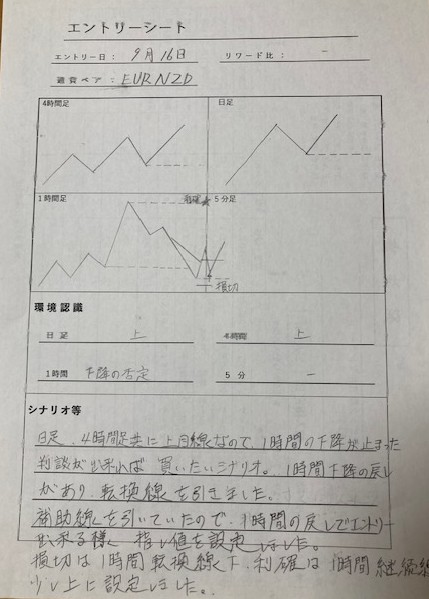 エントリーシート
エントリー日： 9月16日 リワード比： −
通貨ペア： EUR NZD
4時間足 日足
1時間足 利確 5分足
損切
環境認識
日足 上 4時間 上
1時間 下降の否定 5分 −
シナリオ等
日足、4時間足共に上目線なので、1時間の下降が止まった
判談が出来れば買いたいシナリオ。1時間下降の戻し
があり、転換線を引きました。
補助線を引いていたので、1時間の戻しでエントリー
出来る様、指し値を設定しました。
損切は1時間転換線下、利確は1時間継続線
少し上に設定しました。